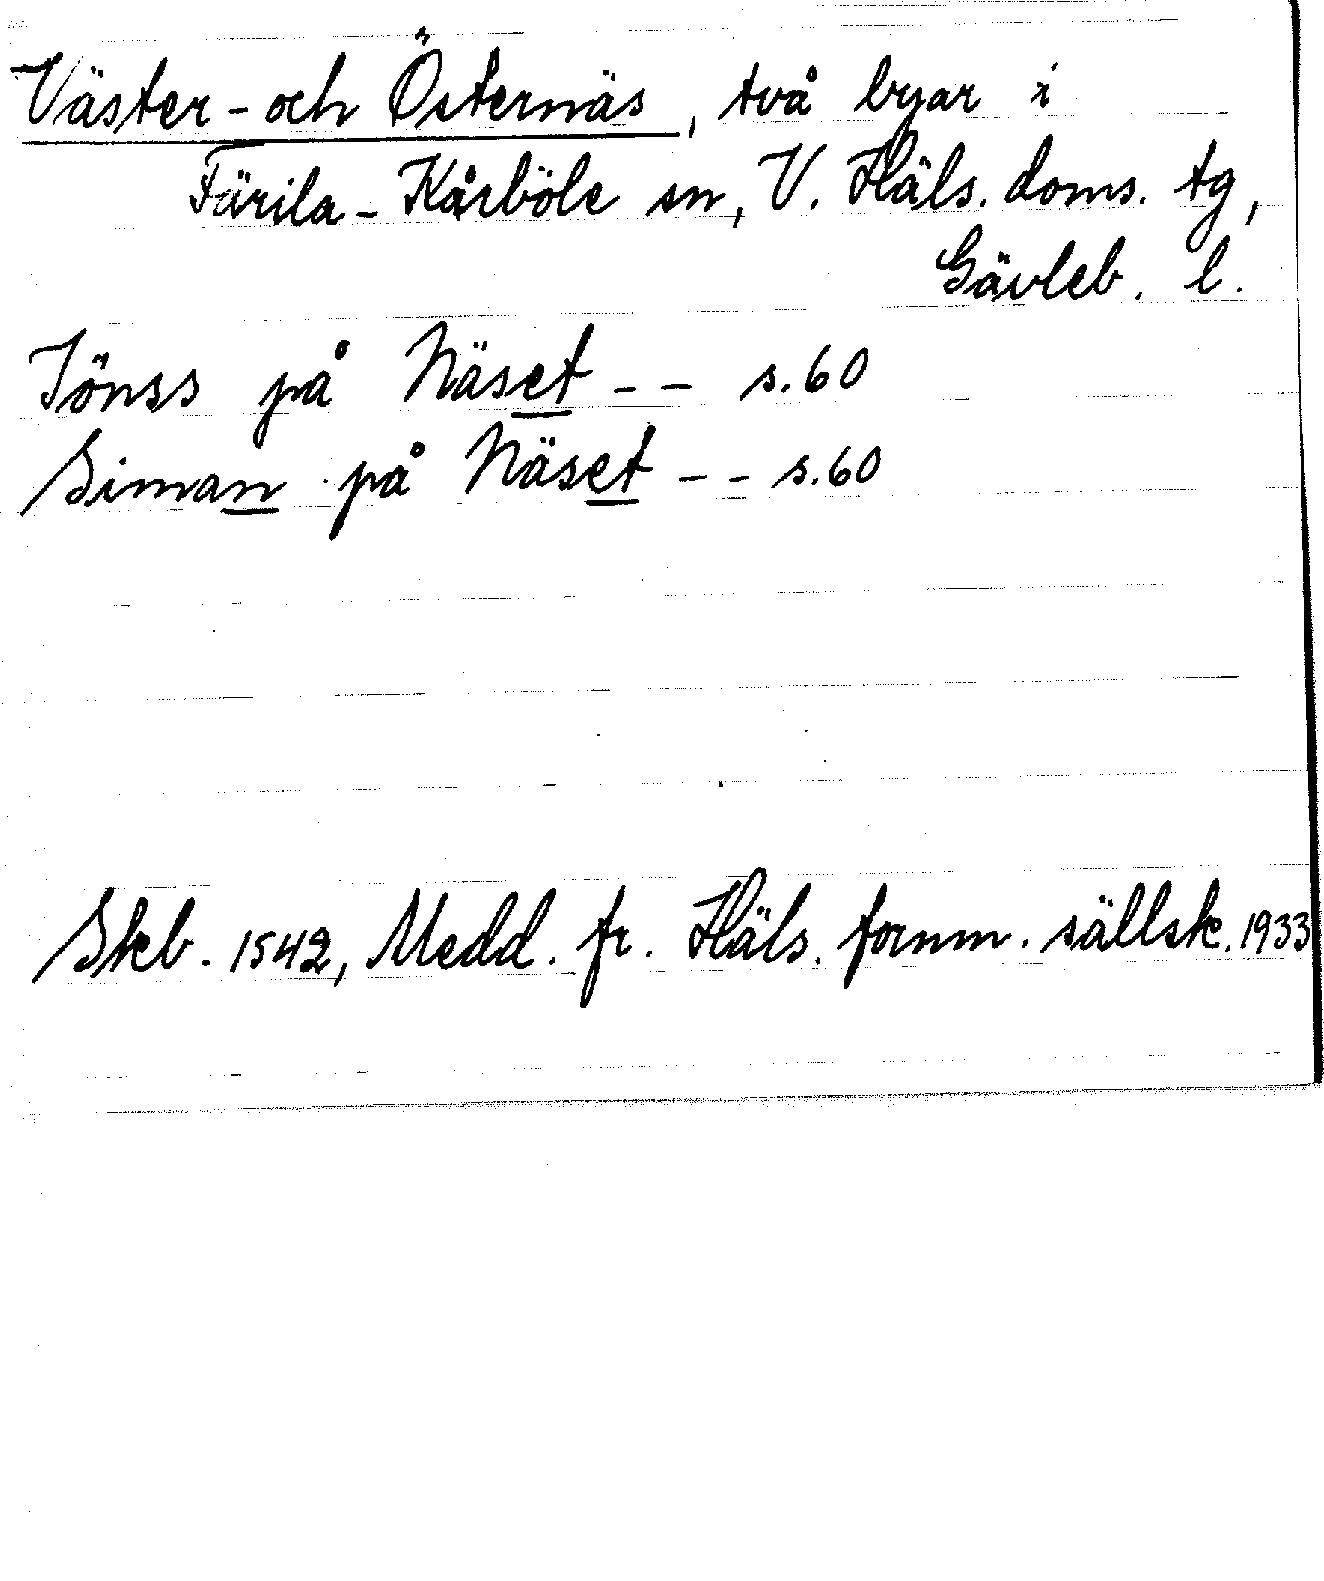 Väster- och Östernäs, två byar i
Färila-Kårböle sn, V. Häls. doms. tg,
Gävleb. l.
Jönss på Näset - - s.60
Siman på Näset - - s.60
Skb. 1542, Medd. fr. Häls. fornm. sällsk. 1933